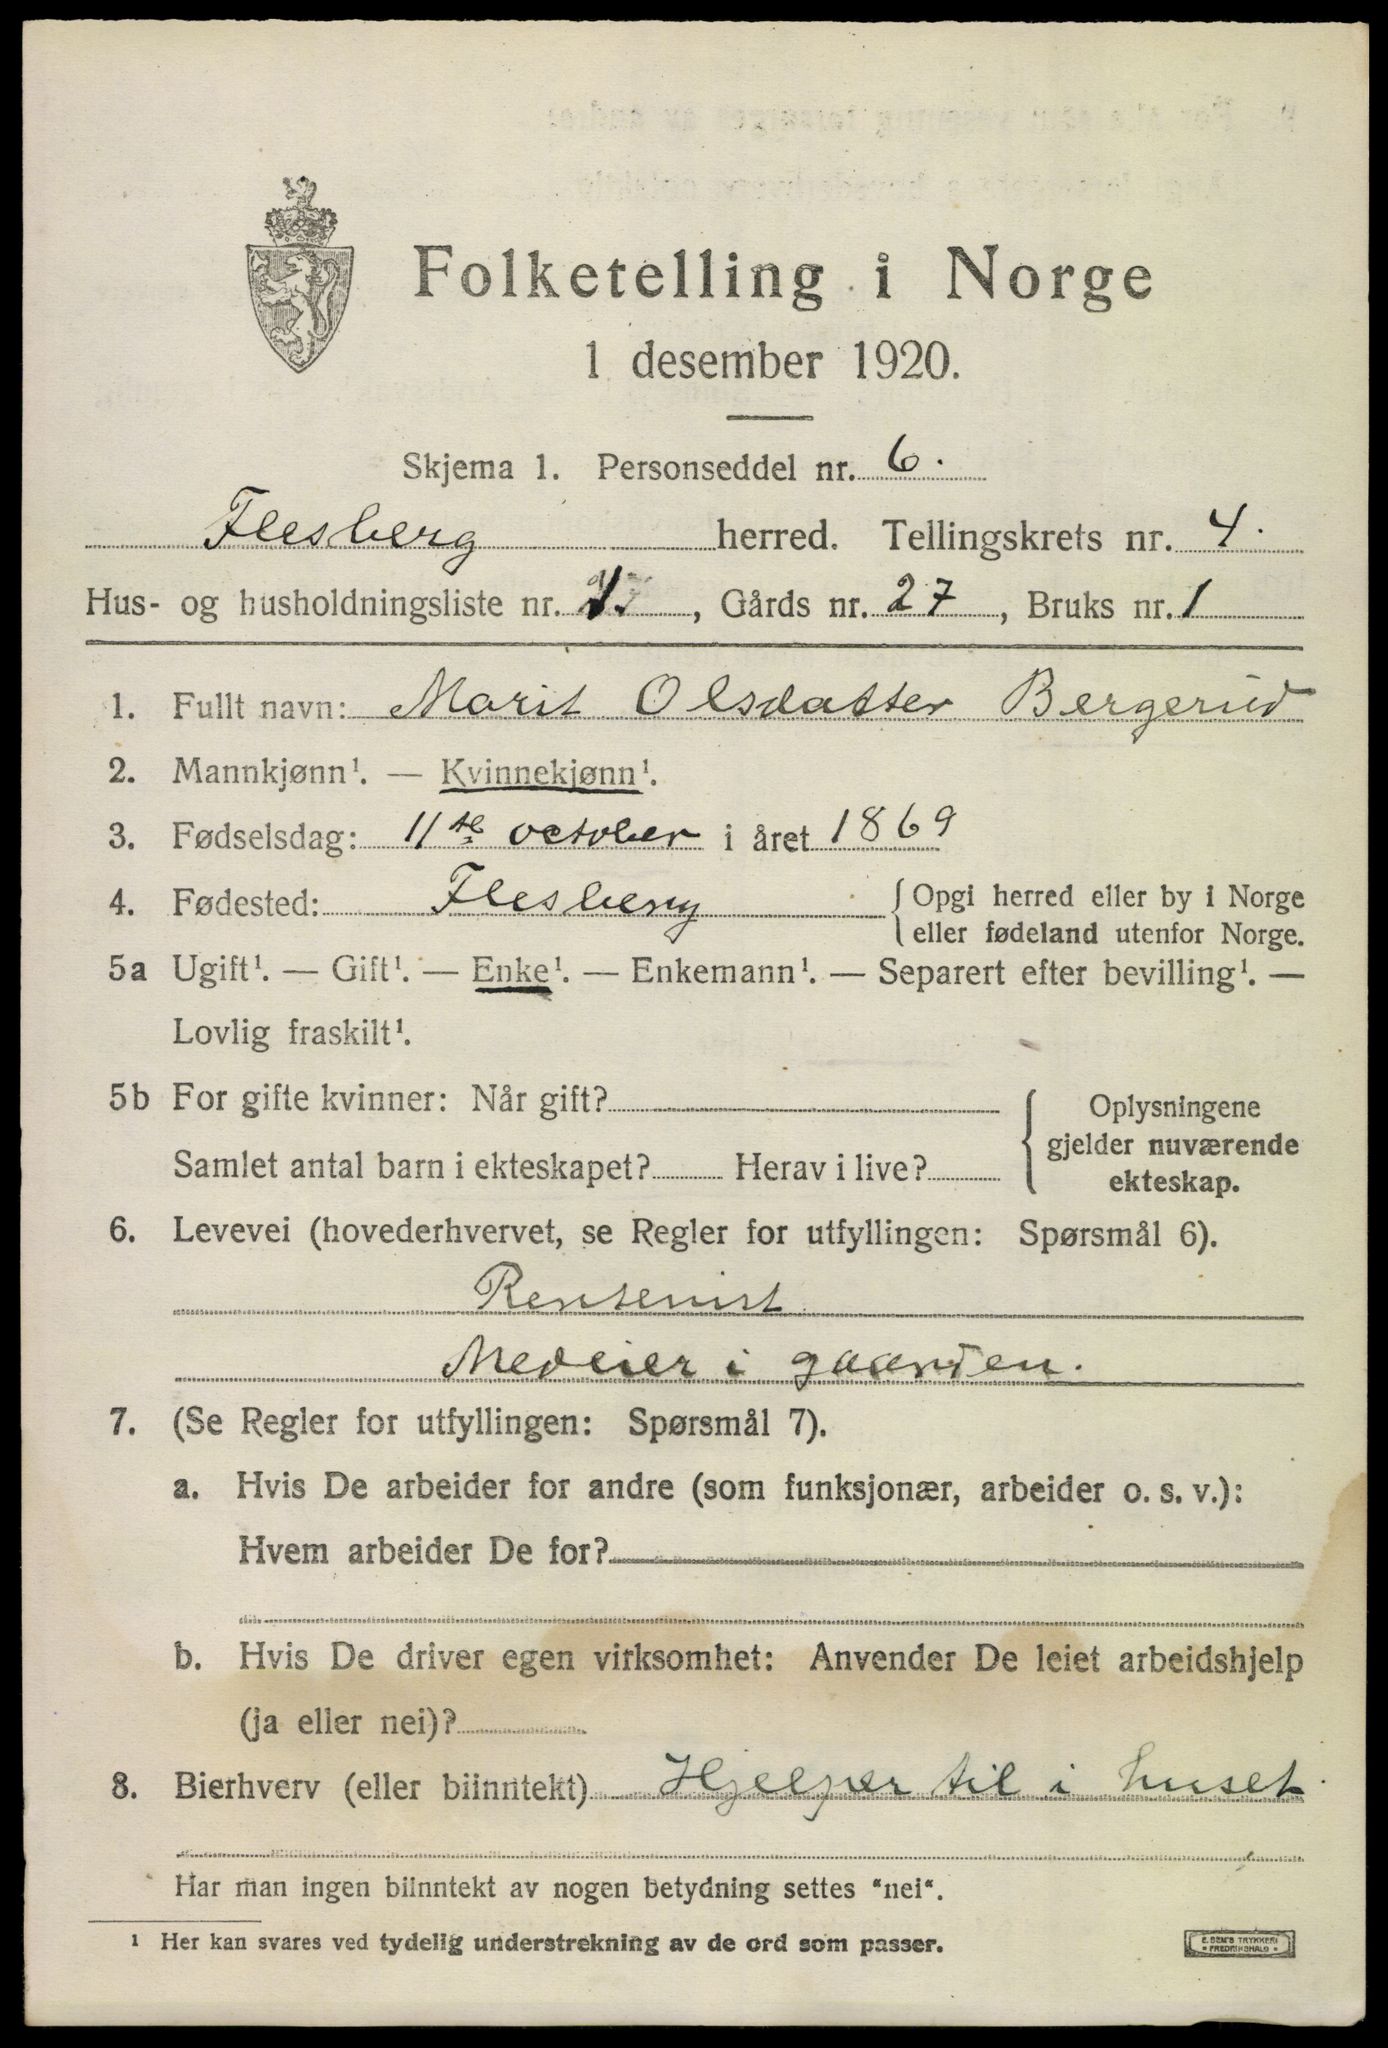 Folketelling i Norge
1 desember 1920.
Skjema 1. Personseddel nr. 6.
Flesberg herred. Tellingskrets nr. 4.
Hus- og husholdningsliste nr. 1., Gårds nr. 27, Bruks nr. 1
1. Fullt navn: Marit Olsdatter Bergerud
2. Mannkjønn¹. — Kvinnekjønn¹.
3. Fødselsdag: 11te october i året 1869
4. Fødested: Flesberg { Opgi herred eller by i Norge
eller fødeland utenfor Norge.
5a Ugift¹. — Gift¹. — Enke¹. — Enkemann¹. — Separert efter bevilling¹. —
Lovlig fraskilt¹.
5b For gifte kvinner: Når gift?
Samlet antal barn i ekteskapet? Herav i live?
{ Oplysningene
gjelder nuværende
ekteskap.
6. Levevei (hovederhvervet, se Regler for utfyllingen: Spørsmål 6).
Rentenist
Medeier i gaarden.
7. (Se Regler for utfyllingen: Spørsmål 7).
a. Hvis De arbeider for andre (som funksjonær, arbeider o. s. v.):
Hvem arbeider De for?
b. Hvis De driver egen virksomhet: Anvender De leiet arbeidshjelp
(ja eller nei)?
8. Bierhverv (eller biinntekt) Hjelper til i huset.
Har man ingen biinntekt av nogen betydning settes "nei".
¹ Her kan svares ved tydelig understrekning av de ord som passer.
E. SEM'S TRYKKERI
FREDRIKSHALD